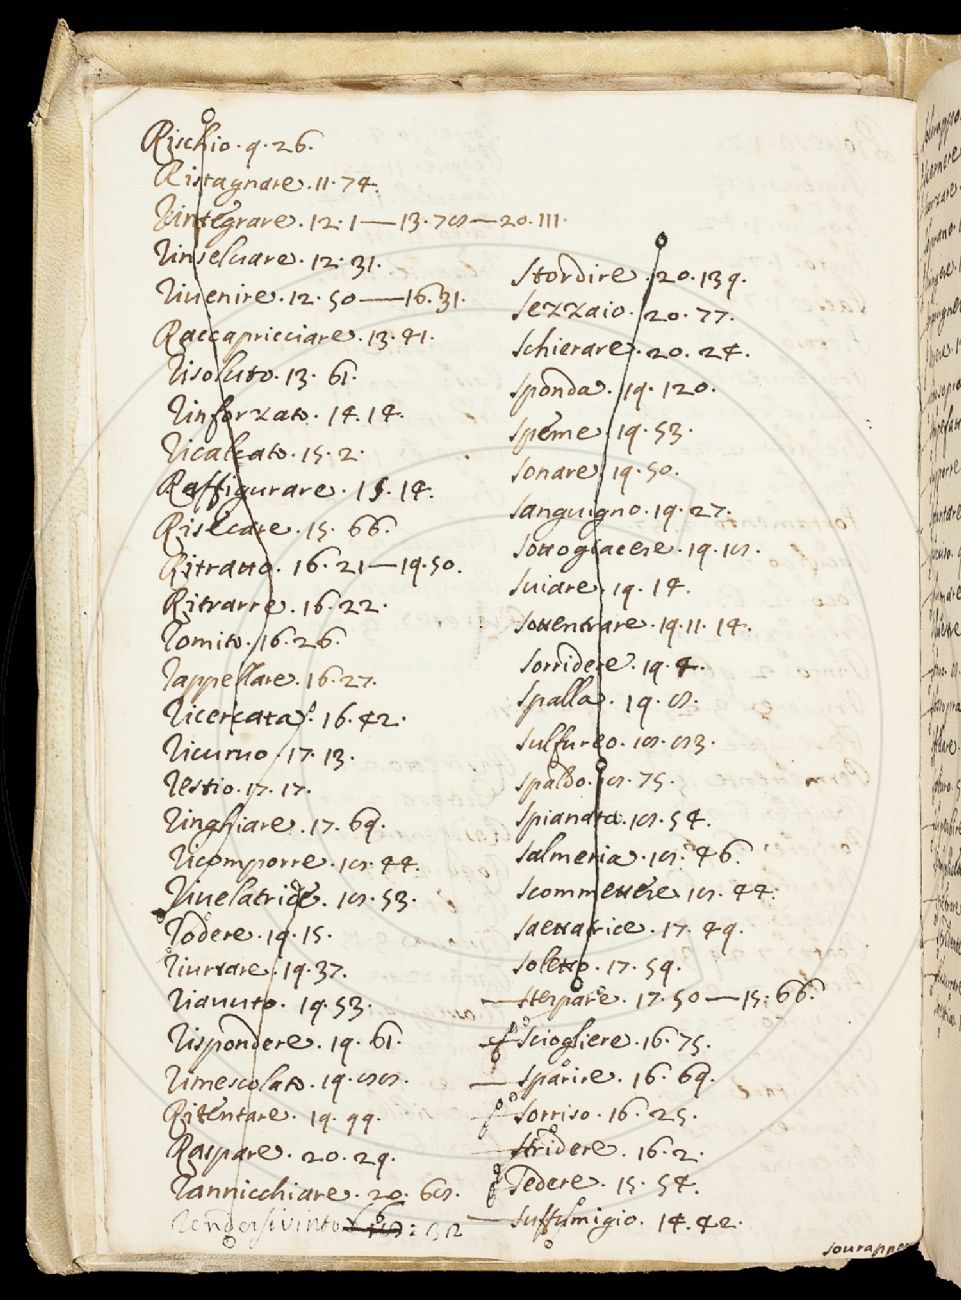 Rischio. 9. 26.
Ristagnare. 11. 74.
Rintegrare. 12. 1 — 13. 78 — 20. 111.
Rinseluare. 12. 31.
Riuenire. 12. 50 — 16. 31.
Raccapricciare. 13. 41.
Risoluto. 13. 61.
Rinforzato. 14. 14.
Ricalcato. 15. 2.
Raffigurare. 15. 14.
Risecare. 15. 66.
Ritratto. 16. 21 — 19. 50.
Ritrarre. 16. 22.
Romito. 16. 26.
Rappellare. 16. 27.
Ricercata. 16. 42.
Ricuruo. 17. 13.
Restio. 17. 17.
Ringhiare. 17. 69.
Ricomporre. 18. 44.
Riuelatrice. 18. 53.
Rodere. 19. 15.
Riurtare. 19. 37.
Riauuto. 19. 53.
Rispondere. 19. 61.
Rimescolato. 19. 88.
Ritentare. 19. 99.
Raspare. 20. 29.
Rannicchiare. 20. 68.
Rendersi uinto
Stordire. 20. 139.
Sezzaio. 20. 77.
Schierare. 20. 24.
Sponda. 19. 120.
Speme. 19. 53.
Sonare. 19. 50.
Sanguigno. 19. 27.
Sottogiacere. 19. 18.
Suiare. 19. 14.
Sottentrare. 19. 11. 14.
Sorridere. 19. 4.
Spalla. 19. 8.
Sulfureo. 18. 83.
Spaldo. 18. 75.
Spianata. 18. 54.
Salmeria. 18. 46.
Scommettere. 18. 44.
Saettatrice. 17. 49.
Soletto. 17. 59.
— Sterpare. 17. 50 — 15. 66.
Sciogliere. 16. 75.
— Sparire. 16. 69.
Sorriso. 16. 25.
— Stridere. 16. 2.
Sedere. 15. 54.
— Suffumigio. 14. 42.